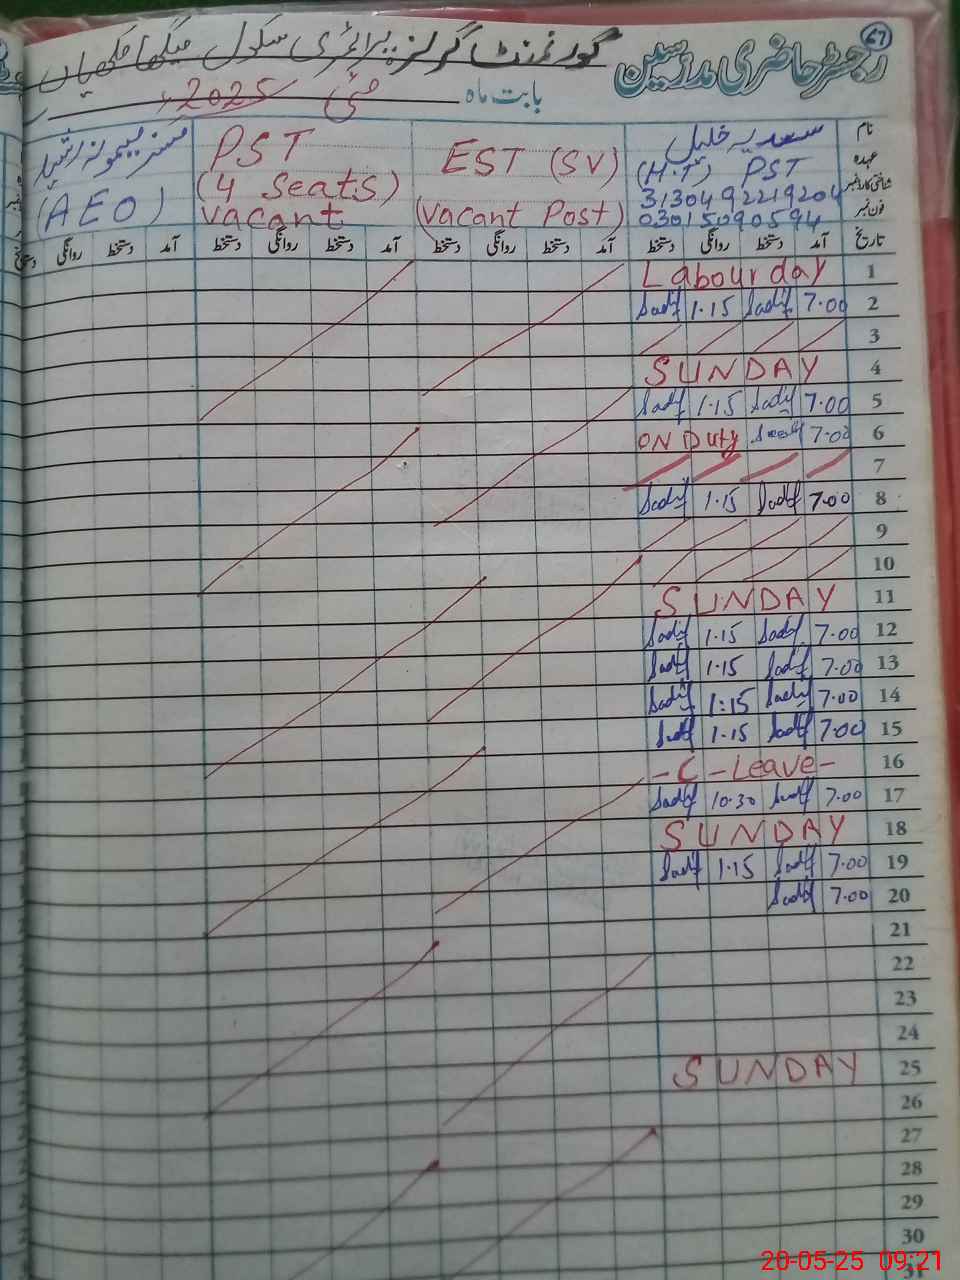 67
رجسٹر حاضری مدرسین گورنمنٹ گرلز پرائمری سکول
بابت ماہ مئی 2025ء
نام سعدیہ خلیل EST (SV) PST
عہدہ (H.T) PST (4 Seats)
شناختی کارڈ نمبر 3130492219204 (Vacant Post) Vacant (AEO)
فون نمبر 03015090594
تاریخ آمد دستخط روانگی دستخط آمد دستخط روانگی دستخط آمد دستخط روانگی دستخط آمد دستخط روانگی دستخط
1 Labour day
2 7.00 Sadif 1.15 Sadif
3
4 SUNDAY
5 7.00 Sadif 1.15 Sadif
6 7.00 Sadif ON Duty
7
8 7.00 Sadif 1.15 Sadif
9
10
11 SUNDAY
12 7.00 Sadif 1.15 Sadif
13 7.00 Sadif 1.15 Sadif
14 7.00 Sadif 1:15 Sadif
15 7.00 Sadif 1.15 Sadif
16 - C - Leave -
17 7.00 Sadif 10.30 Sadif
18 SUNDAY
19 7.00 Sadif 1.15 Sadif
20 7.00 Sadif
21
22
23
24
25 SUNDAY
26
27
28
29
30
31
20-05-25 09:21